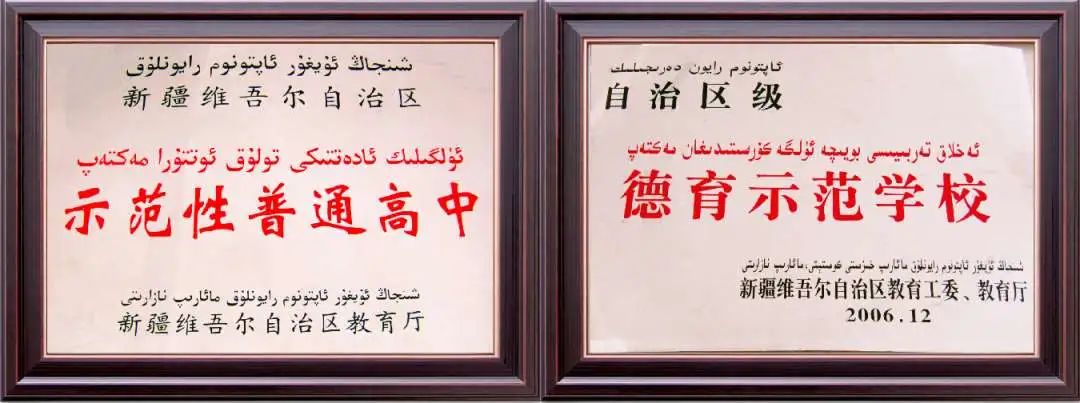 شىنجاڭ ئۇيغۇر ئاپتونوم رايونلۇق
新疆维吾尔自治区
ئۈلگىلىك ئادەتتىكى تولۇق ئوتتۇرا مەكتەپ
示范性普通高中
شىنجاڭ ئۇيغۇر ئاپتونوم رايونلۇق مائارىپ نازارىتى
新疆维吾尔自治区教育厅
ئاپتونوم رايون دەرىجىلىك
自治区级
ئەخلاق تەربىيىسى بويىچە ئۈلگە كۆرسىتىدىغان مەكتەپ
德育示范学校
شىنجاڭ ئۇيغۇر ئاپتونوم رايونلۇق مائارىپ خىزمىتى كومىتېتى، مائارىپ نازارىتى
新疆维吾尔自治区教育工委、教育厅
2006.12